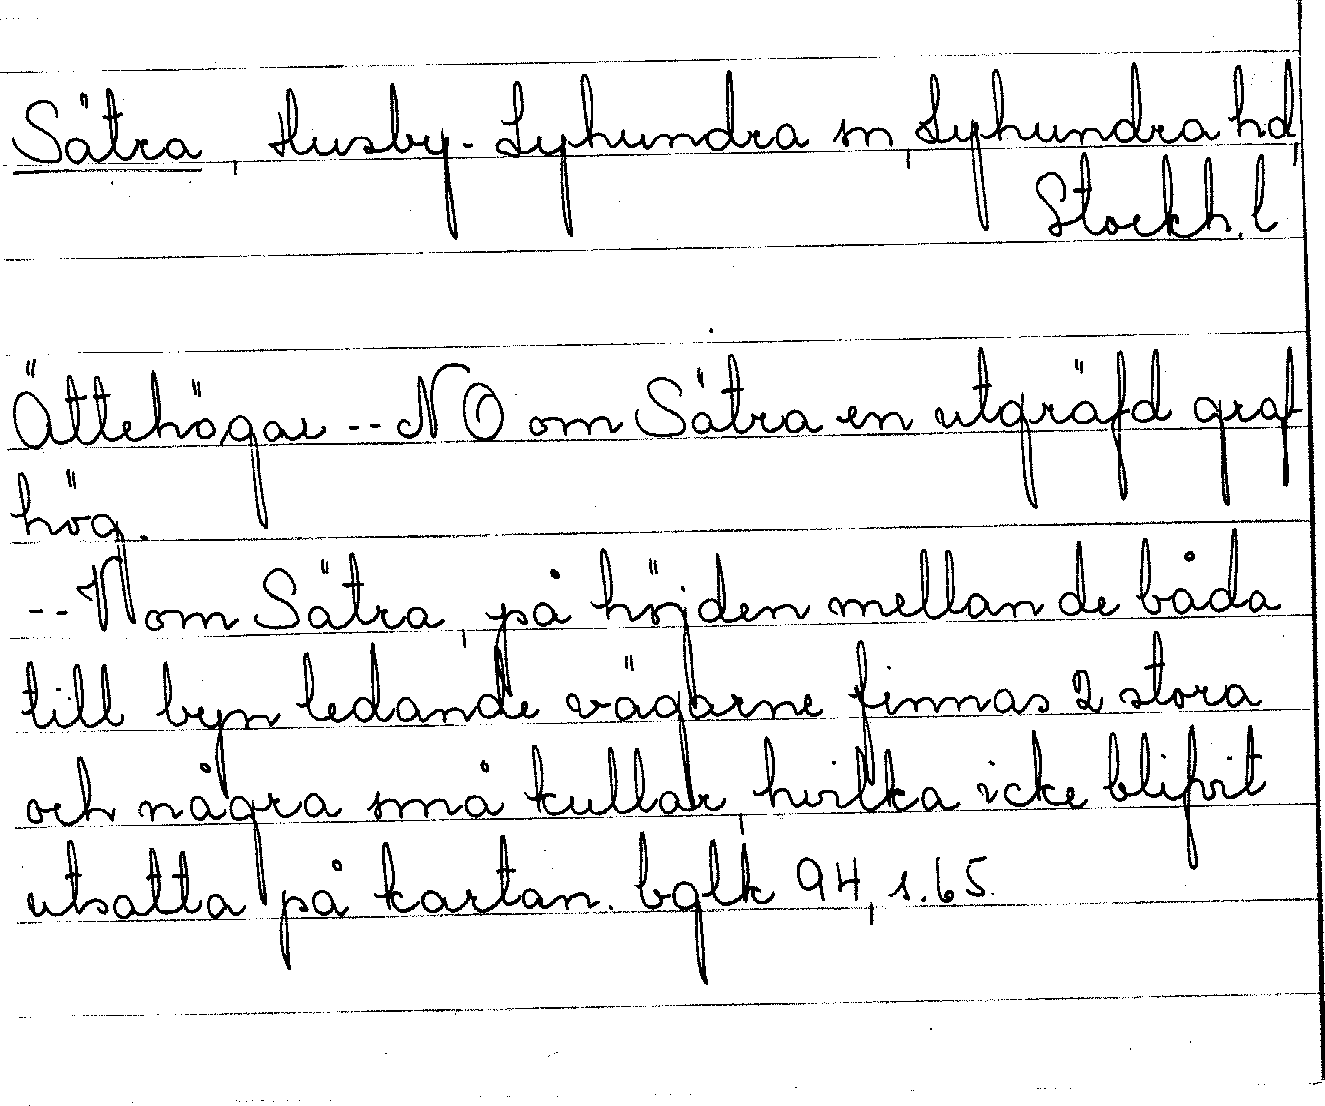 Sätra, Husby-Lyhundra sn, Lyhundra hd,
Stockh. l
Ättehögar -- NO om Sätra en utgräfd graf
hög.
-- N om Sätra, på höjden mellan de båda
till byn ledande vägarne finnas 2 stora
och några små kullar, hvilka icke blifvit
utsatta på kartan. bglk 94, s. 65.